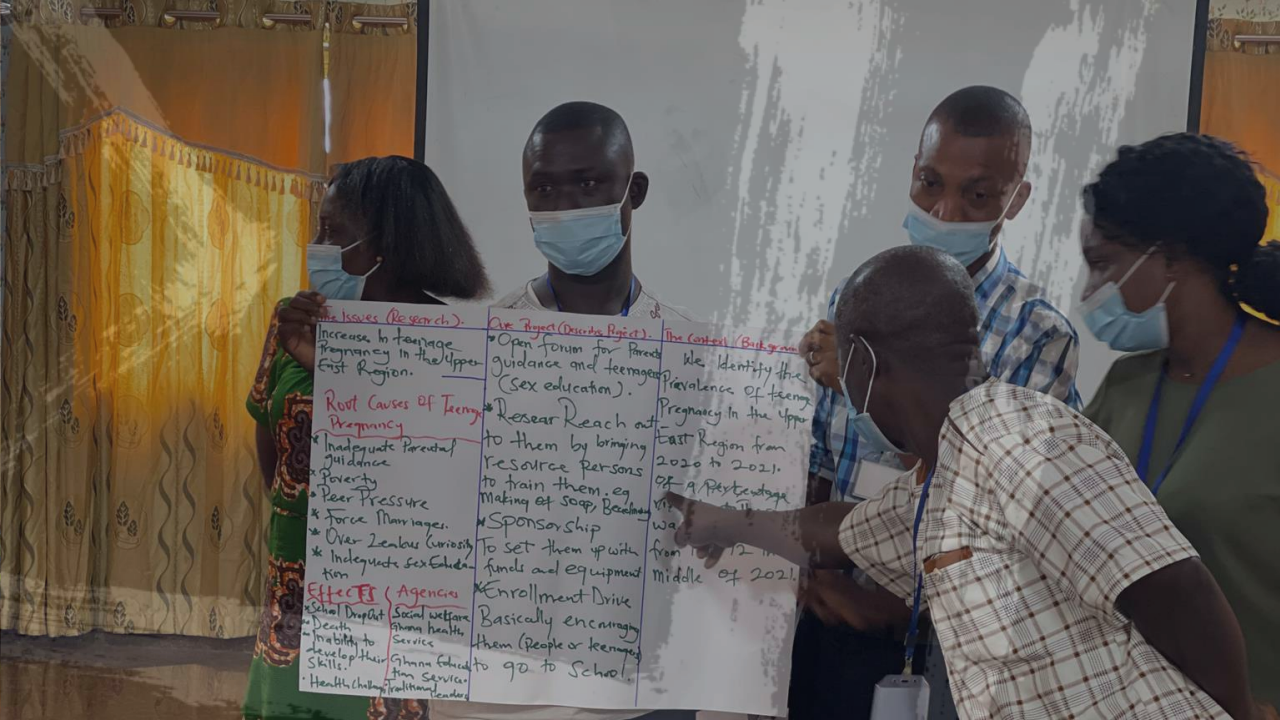 The Issues (Research).
Increase In teenage
Pregnancy In the Upper
East Region.
Root Causes Of Teenage
Pregnancy
* Inadequate Parental
guidance
* Poverty
* Peer Pressure
* Force Marriages.
* Over Zealous Curiosity
* Indequate Sex Educa-
tion
Effects
- School Dropout
- Death
- Inability to
develop their
Skills.
- Health Challeng
Agencies
Social welfare
Ghana health
Service
Ghana Educa
tion Service
Traditional
leaders
Our Project (Describe Project).
* Open forum for Parents
guidance and teenagers
(Sex education).
* Resear Reach out
to them by bringing
resource persons
to train them. eg
Making of Soap,
* Sponsorship
To set them up with
funds and equipment
* Enrollment Drive
Basically encouraging
them (People or teenagers
to go to School.
The Context (Background
We Identify the
Prevalence of teenage
Pregnancy In the Upper
East Region from
2020 to 2021.
Of a Percentage
from 12
middle of 2021.